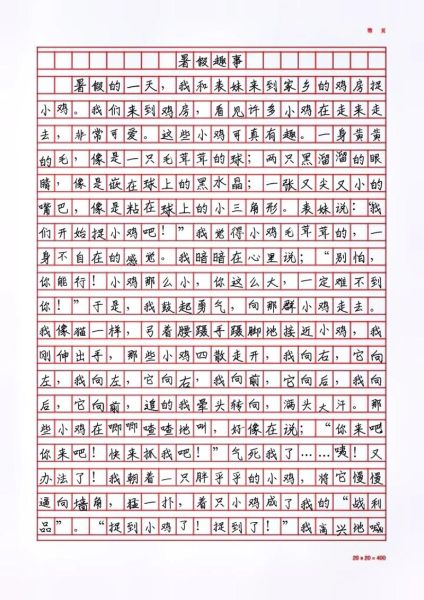 暑假趣事
暑假的一天，我和表妹来到家乡的鸡房捉
小鸡。我们来到鸡房，看见许多小鸡在走来走
去，非常可爱。这些小鸡可真有趣。一身黄黄
的毛，像是一只毛茸茸的球；两只黑溜溜的眼
睛，像是嵌在球上的黑水晶；一张又尖又小的
嘴巴，像是粘在球上的小三角形。表妹说：“我
们开始捉小鸡吧！”我觉得小鸡毛茸茸的，一
身不自在的感觉。我暗暗在心里说；“别怕，
你能行！小鸡那么小，你这么大，一定难不到
你！”于是，我鼓起勇气，向那群小鸡走去。
我像猫一样，弓着腰蹑手蹑脚地接近小鸡，我
刚伸出手，那些小鸡四散走开，我向右，它向
左，我向左，它向右，我向前，它向后，我向
后，它向前，追的我晕头转向，满头大汗。那
些小鸡在唧唧喳喳地叫，好像在说；“你来吧
你来吧！快来抓我吧！”气死我了……咦！又
办法了！我朝着一只胖乎乎的小鸡，将它慢慢
逼向墙角，猛一扑，着只小鸡成了我的“战利
品”。“捉到小鸡了！捉到了！”我高兴地喊
20 x 20 = 400